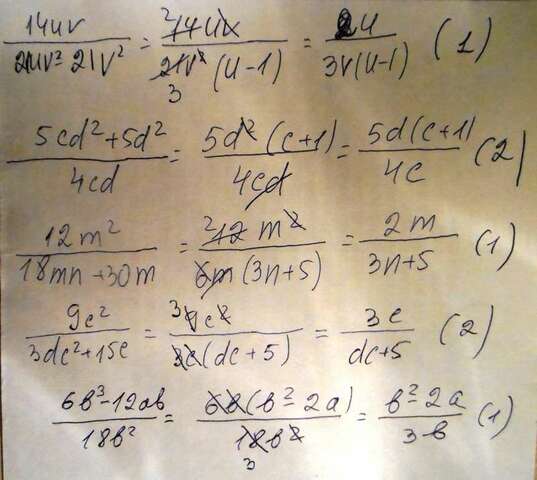 14uv / 21uv² - 21v² = ²14uv / 21v² (u-1) 3 = 2u / 3v(u-1) (1)
5cd² + 5d² / 4cd = 5d² (c+1) / 4cd = 5d(c+1) / 4c (2)
12m² / 18mn + 30m = ²12 m² / 6m (3n+5) = 2m / 3n+5 (1)
9c² / 3dc² + 15c = ³9c² / 3c(dc+5) = 3c / dc+5 (2)
6b³ - 12ab / 18b² = 6b(b² - 2a) / 18b² 3 = b² - 2a / 3b (1)